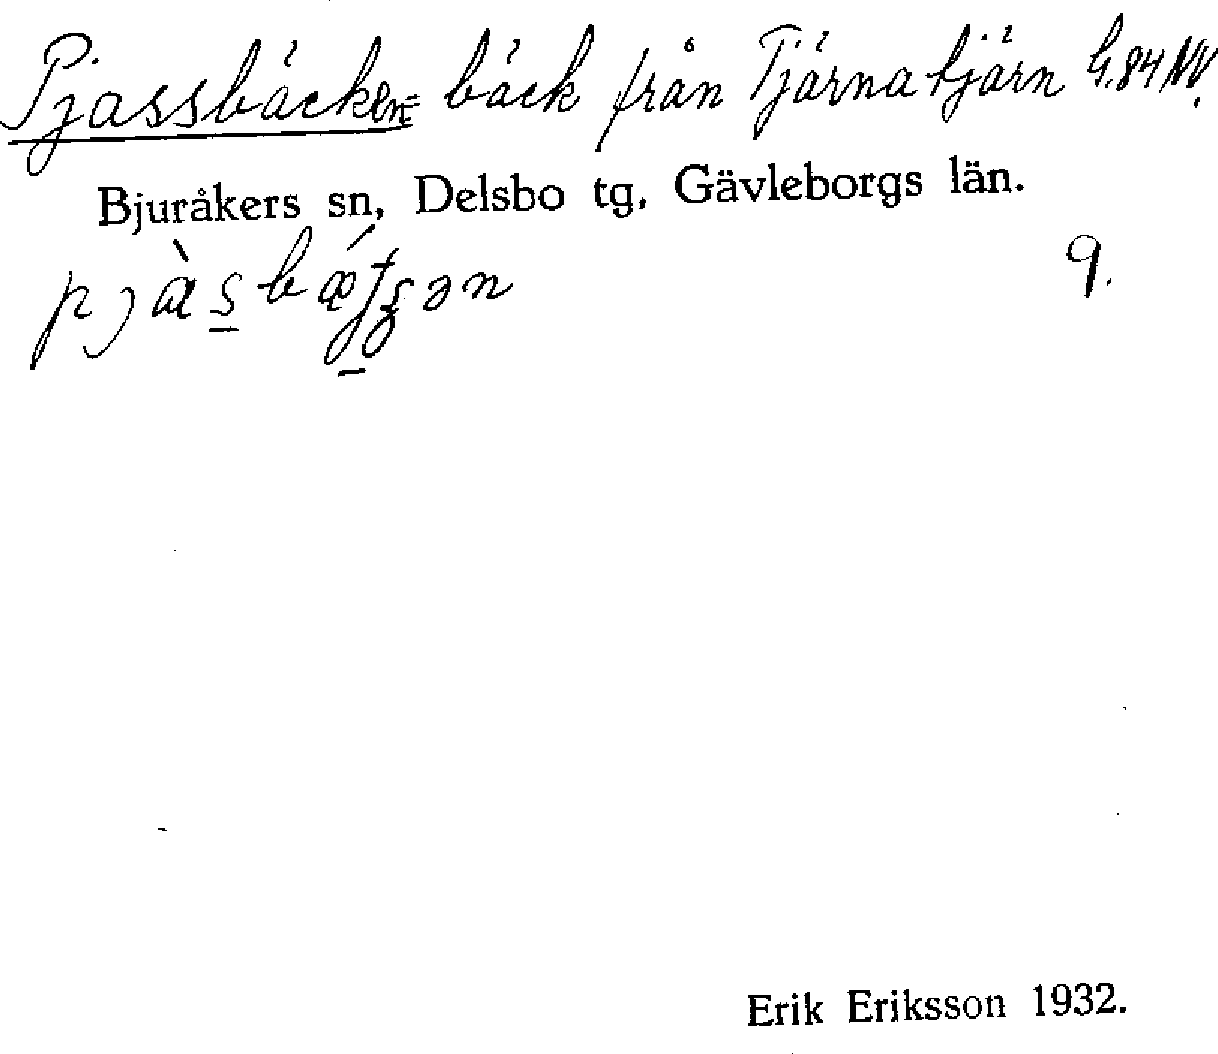 Pjassbäcken = bäck från Tjärnatjärn G.84 NV.
Bjuråkers sn, Delsbo tg, Gävleborgs län.
9.
Erik Eriksson 1932.